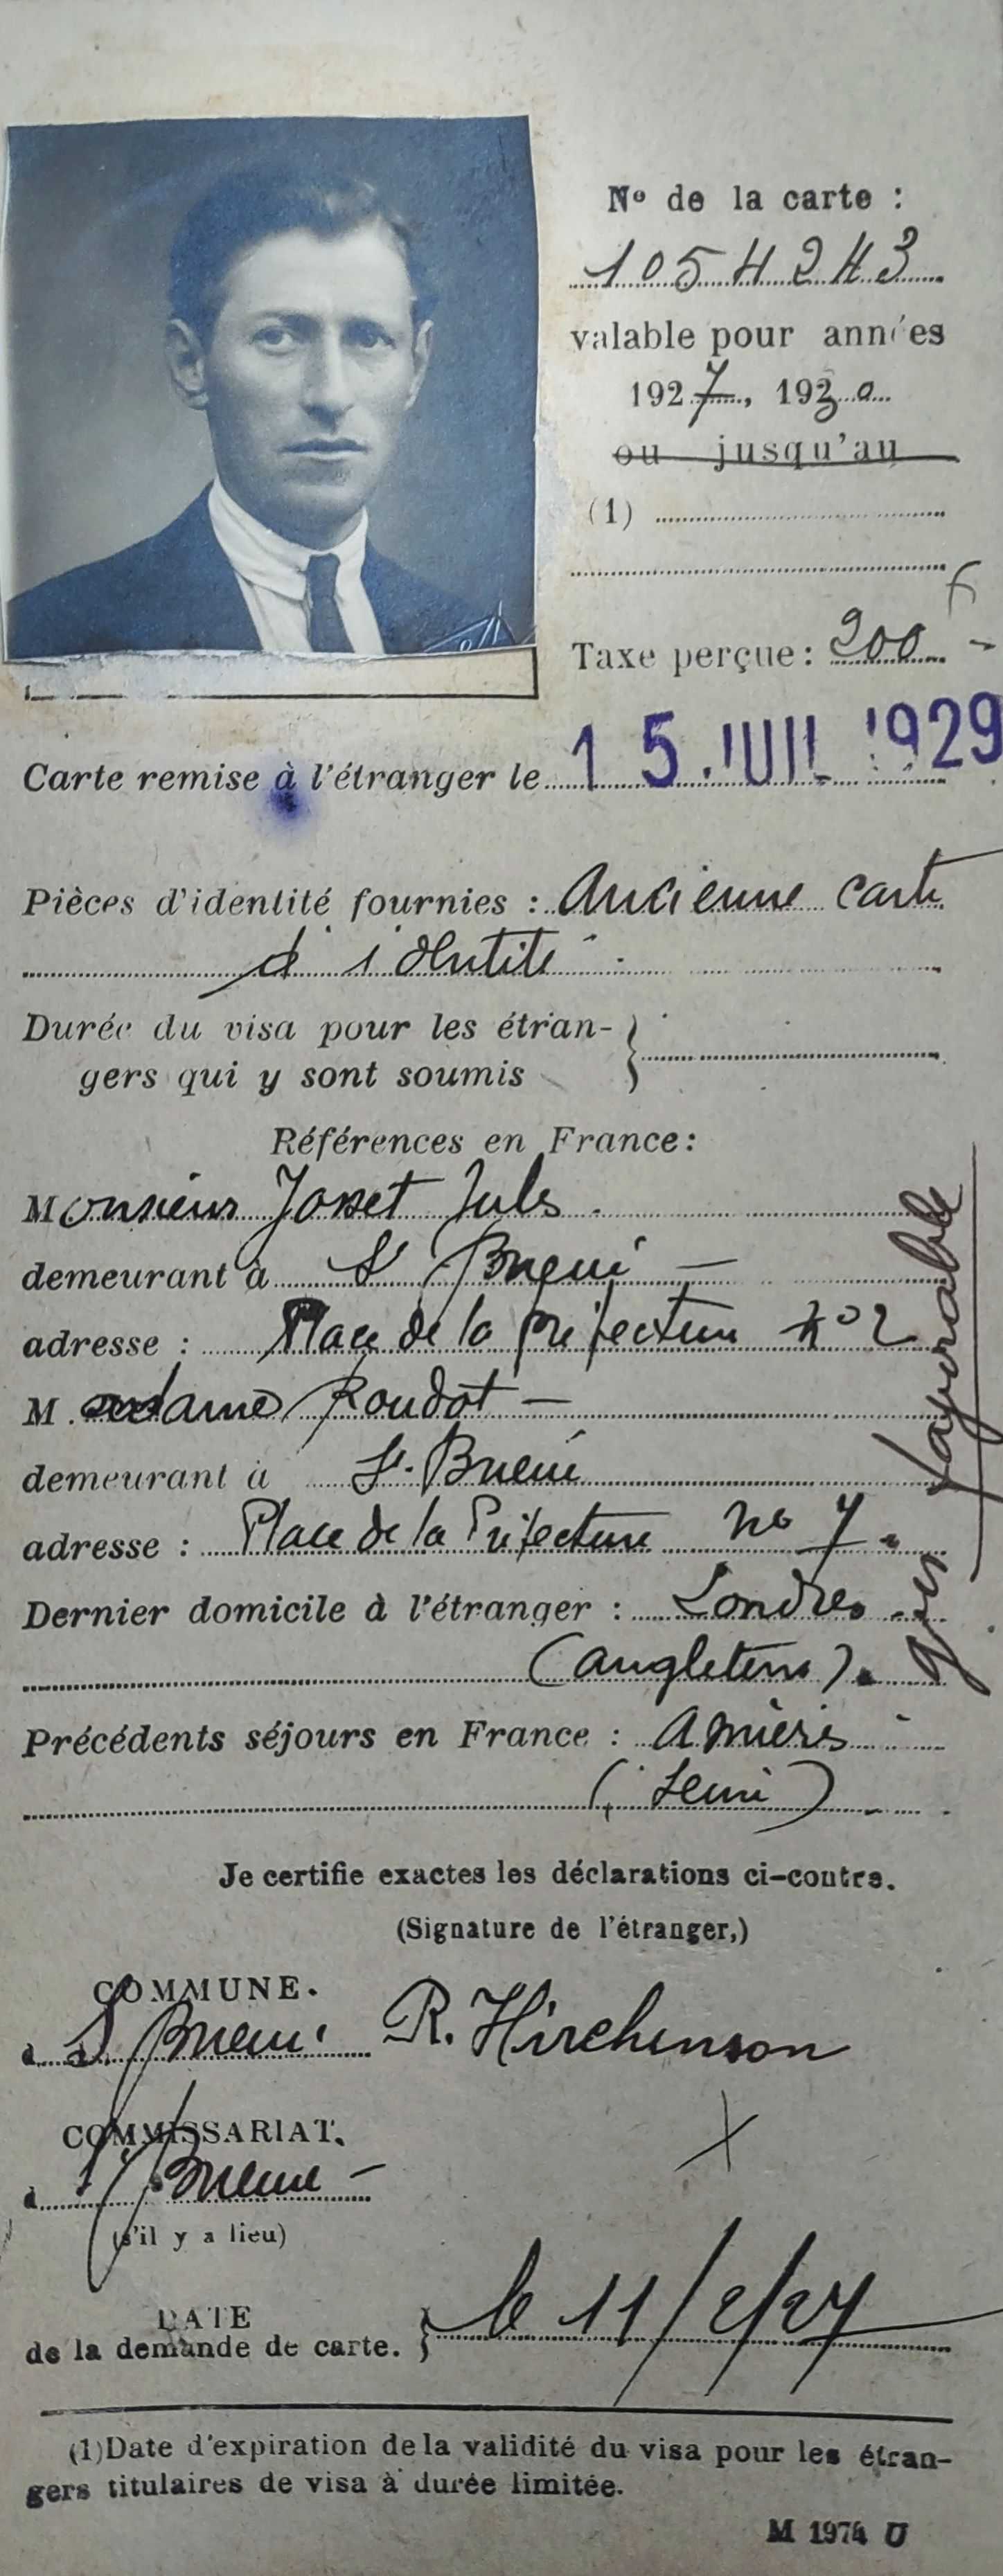 Nº de la carte :
1054243
valable pour années
1927, 1930
ou jusqu'au
(1)
Taxe perçue : 200 f -
Carte remise à l'étranger le 15 JUIL 1929
Pièces d'identité fournies : Ancienne carte
d'identité -
Durée du visa pour les étran-
gers qui y sont soumis
Références en France :
Monsieur Josset Jules
demeurant à St Brieuc -
adresse : Place de la préfecture nº 2
Madame Roudot -
demeurant à St. Brieuc
adresse : Place de la Préfecture no 7.
Dernier domicile à l'étranger : Londres
(Angleterre).
Précédents séjours en France : Asnières -
(Seine)
Avis favorable
Je certifie exactes les déclarations ci-contre.
(Signature de l'étranger,)
COMMUNE.
à St Brieuc R. Hirchenson
COMMISSARIAT.
à St Brieuc -
(s'il y a lieu)
DATE
de la demande de carte. } le 11/2/27
(1) Date d'expiration de la validité du visa pour les étran-
gers titulaires de visa à durée limitée.
M 1974 U